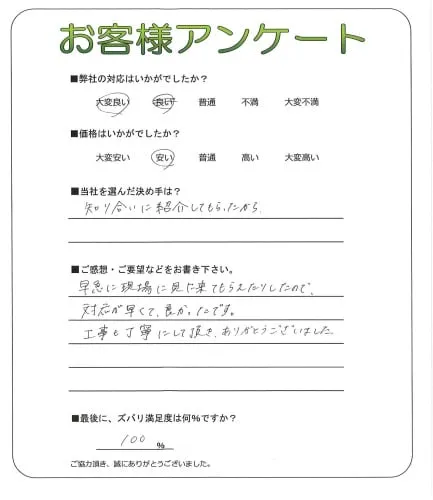 お客様アンケート
■弊社の対応はいかがでしたか？
大変良い 良い 普通 不満 大変不満
■価格はいかがでしたか？
大変安い 安い 普通 高い 大変高い
■当社を選んだ決め手は？
知り合いに紹介してもらったから
■ご感想・ご要望などをお書き下さい。
早急に現場に見に来てもらえたりしたので、
対応が早くて、良かったです。
工事も丁寧にして頂き、ありがとうございました。
■最後に、ズバリ満足度は何％ですか？
100 ％
ご協力頂き、誠にありがとうございました。